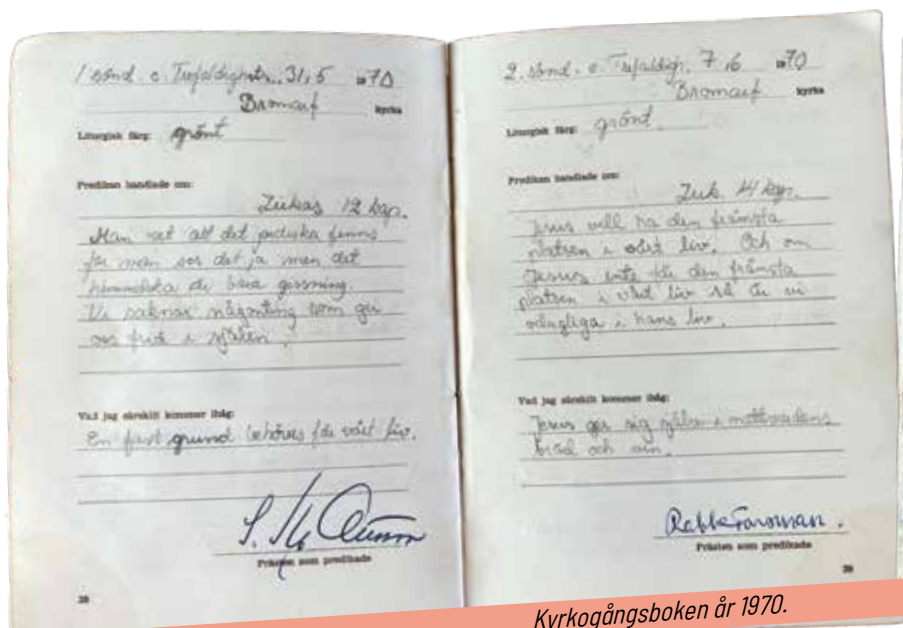 1 sönd. e. Trefaldighets. 31,5 1970
Bromarf kyrka
Liturgisk färg: grönt
Predikan handlade om:
Lukas 12 kap.
Man vet att det jordiska finns
för man ser det ju men det
himmelska är bara gissning.
Vi saknar någonting som ger
oss frid i själen.
Vad jag särskilt kommer ihåg:
En fast grund behöves för vårt liv.
Prästen som predikade
28
2. sönd. e. Trefaldigh. 7,6 1970
Bromarf kyrka
Liturgisk färg: grönt.
Predikan handlade om:
Luk 14 kap.
Jesus vill ha den främsta
platsen i vårt liv. Och om
Jesus inte får den främsta
platsen i vårt liv så är vi
odugliga i hans liv.
Vad jag särskilt kommer ihåg:
Jesus ger sig själv i nattvardens
bröd och vin.
Prästen som predikade
29
Kyrkogångsboken år 1970.